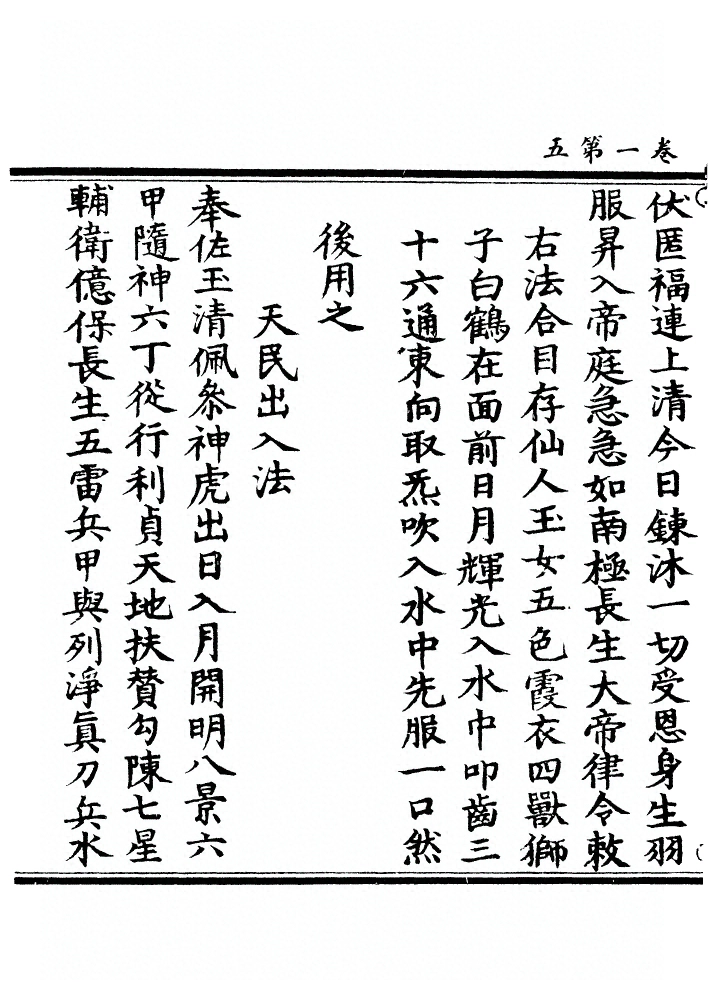 卷一第五
伏匿福連上清今日鍊沐一切受恩身生羽
服昇入帝庭急急如南極長生大帝律令敕
右法合目存仙人玉女五色霞衣四獸獅
子白鶴在面前日月輝光入水中叩齒三
十六通東向取炁吹入水中先服一口然
後用之
天民出入法
奉佐玉清佩叅神虎出日入月開明八景六
甲隨神六丁從行利貞天地扶贊勾陳七星
輔衛億保長生五雷兵甲與列淨真刀兵水